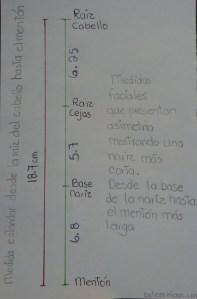 Raiz
Cabello
6.25
Raiz
Cejas
5.7
Base
nariz
6.8
Mentón
Medida estandar desde la raiz del cabello hasta el mentón
18.7cm
Medidas
faciales
que presentan
asimetria
mostrando una
nariz más
corta.
Desde la base
de la nariz hasta
el mentón más
larga